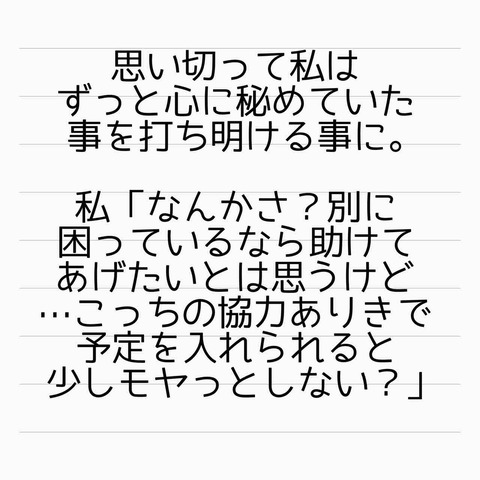 思い切って私は
ずっと心に秘めていた
事を打ち明ける事に。
私「なんかさ？別に
困っているなら助けて
あげたいとは思うけど
…こっちの協力ありきで
予定を入れられると
少しモヤっとしない？」